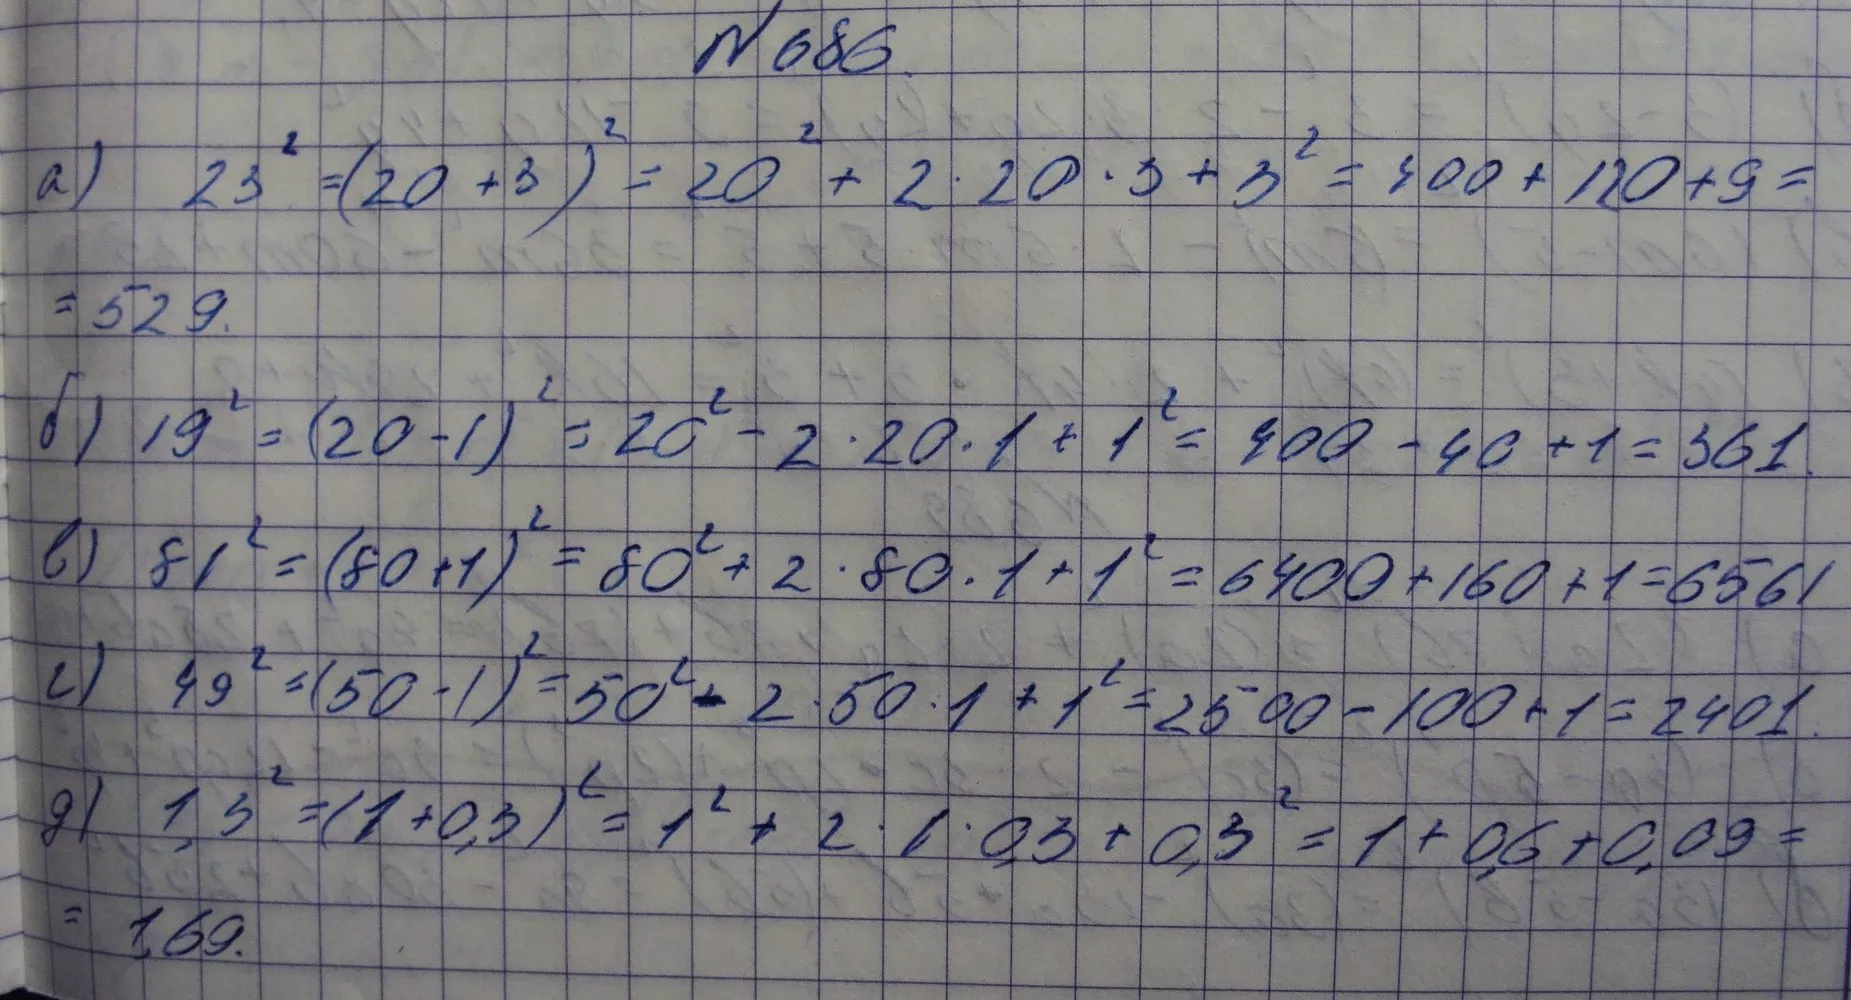 №686.
а) 23² = (20 + 3)² = 20² + 2 · 20 · 3 + 3² = 400 + 120 + 9 =
= 529.
б) 19² = (20 - 1)² = 20² - 2 · 20 · 1 + 1² = 400 - 40 + 1 = 361.
в) 81² = (80 + 1)² = 80² + 2 · 80 · 1 + 1² = 6400 + 160 + 1 = 6561
г) 49² = (50 - 1)² = 50² - 2 · 50 · 1 + 1² = 2500 - 100 + 1 = 2401.
д) 1,3² = (1 + 0,3)² = 1² + 2 · 1 · 0,3 + 0,3² = 1 + 0,6 + 0,09 =
= 1,69.